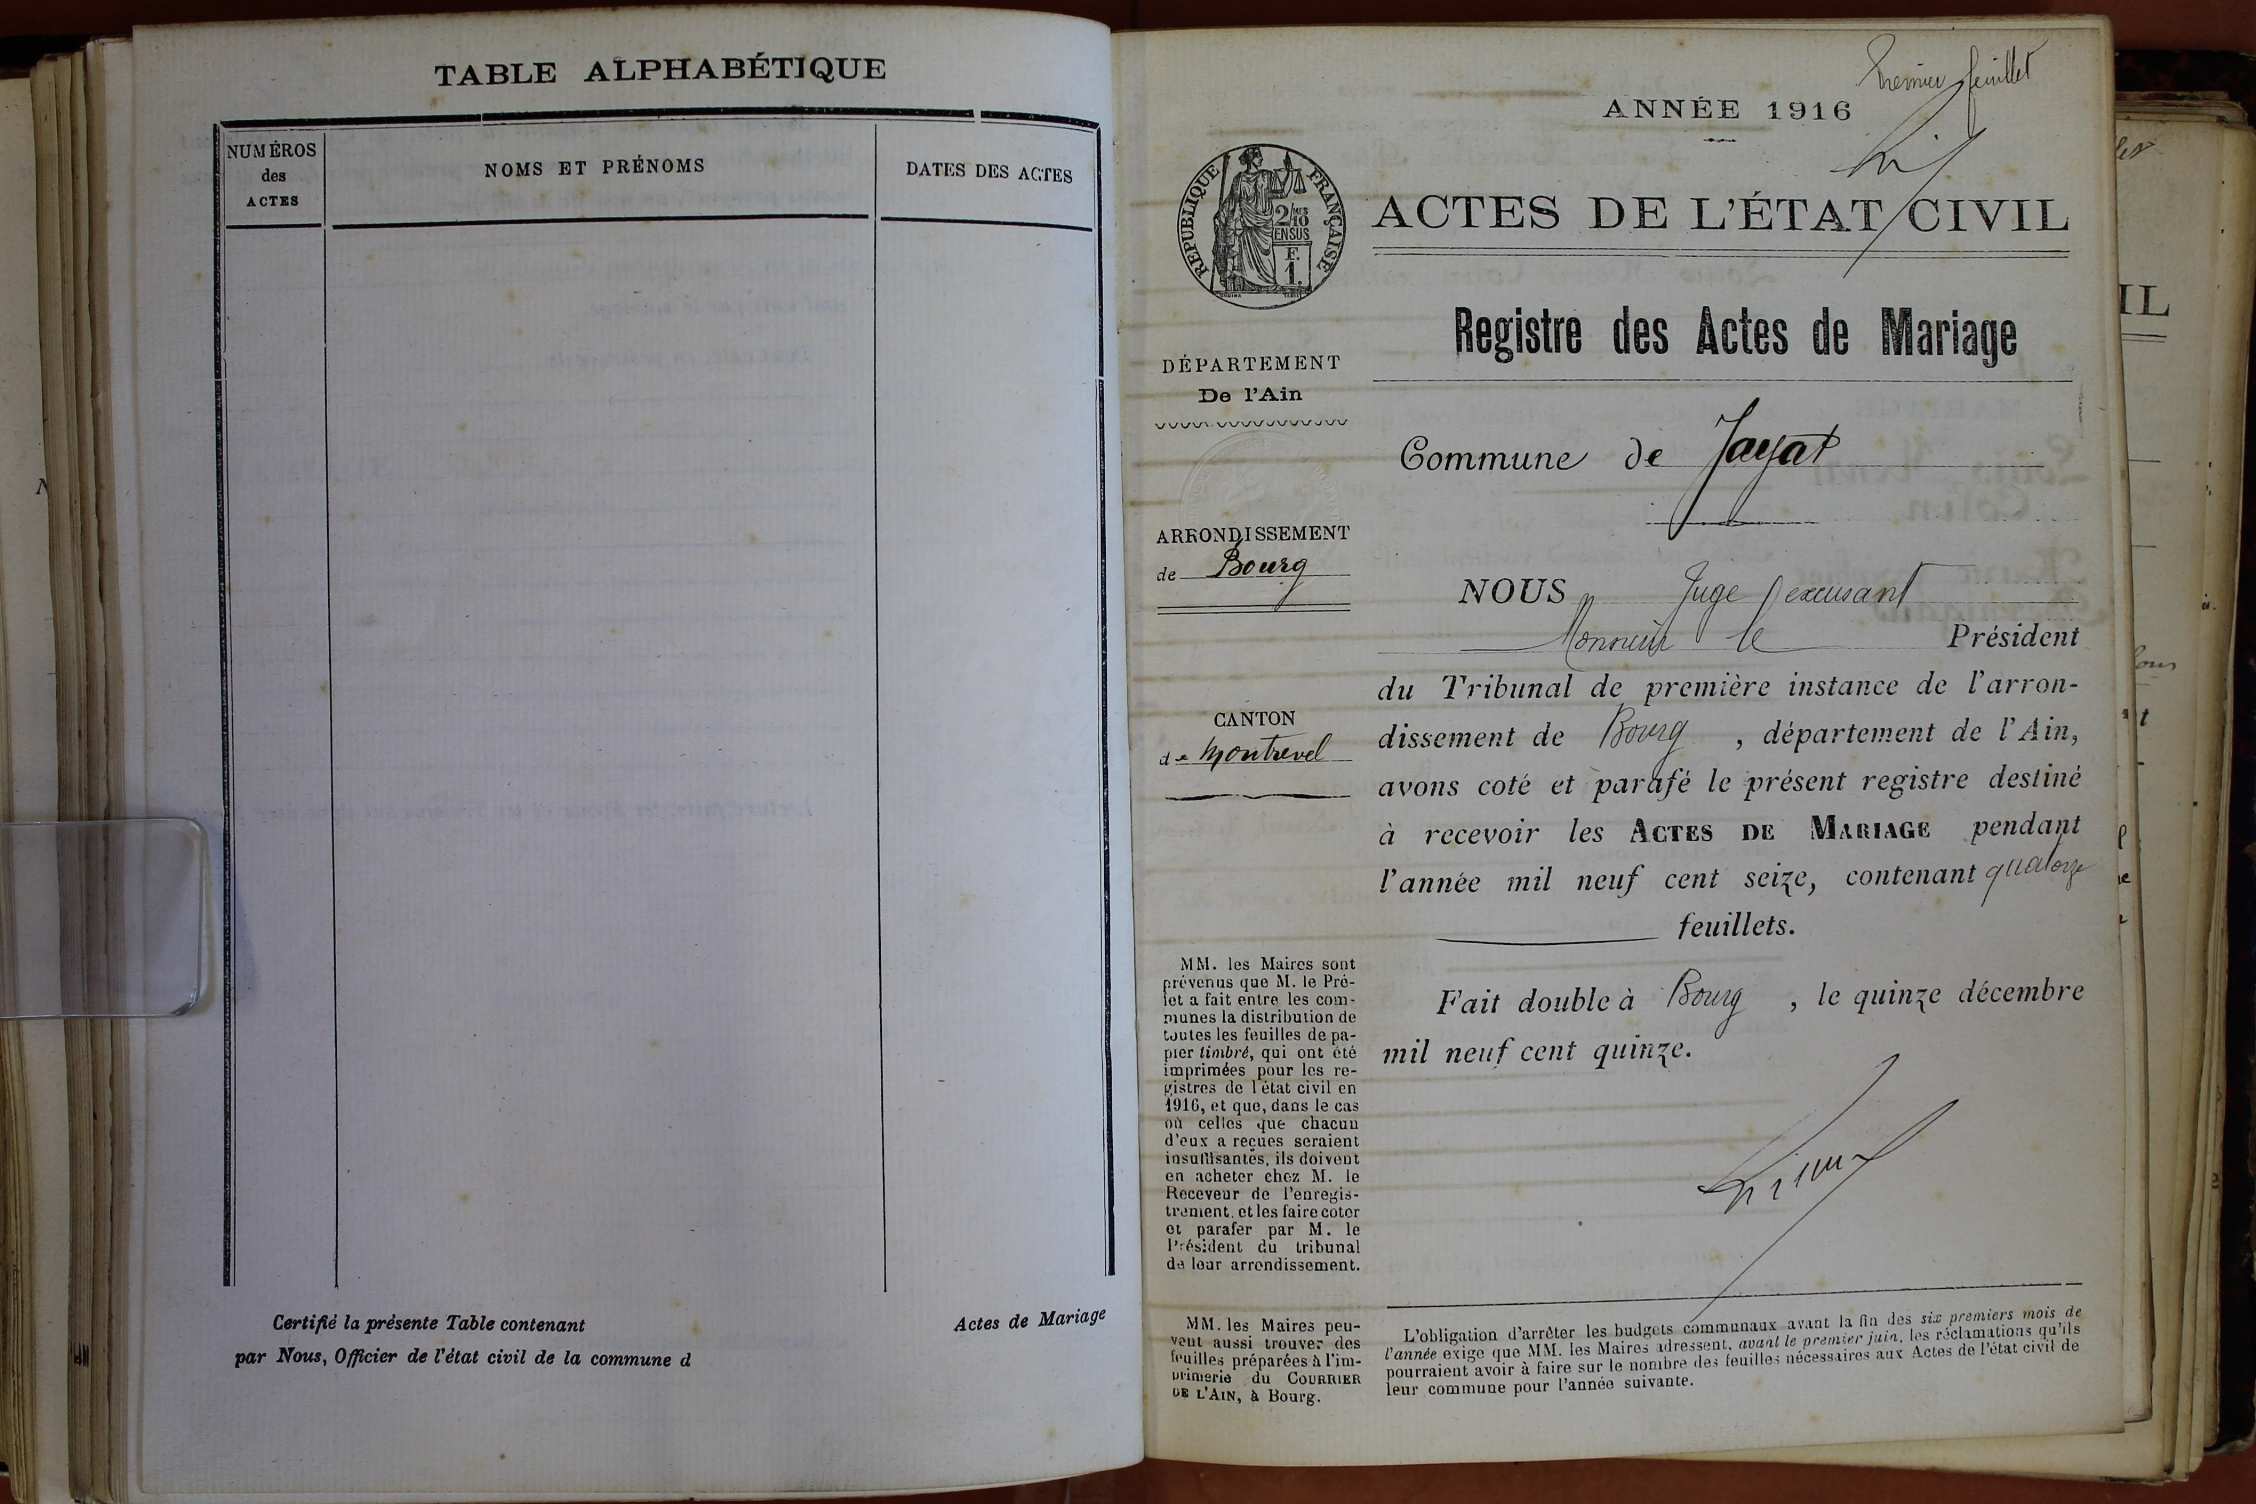 TABLE ALPHABÉTIQUE
NUMÉROS
des
ACTES
NOMS ET PRÉNOMS
DATES DES ACTES
Certifié la présente Table contenant
Actes de Mariage
par Nous, Officier de l'état civil de la commune d
Premier feuillet
ANNÉE 1916
RÉPUBLIQUE FRANÇAISE
2/10MES
EN SUS
F.
1.
ACTES DE L'ÉTAT CIVIL
Registre des Actes de Mariage
DÉPARTEMENT
De l'Ain
Commune de Jayat
ARRONDISSEMENT
de Bourg
CANTON
de Montrevel
NOUS Juge
Monsieur le Président
du Tribunal de première instance de l'arron-
dissement de Bourg, département de l'Ain,
avons coté et parafé le présent registre destiné
à recevoir les ACTES DE MARIAGE pendant
l'année mil neuf cent seize, contenant quatorze
feuillets.
Fait double à Bourg, le quinze décembre
mil neuf cent quinze.
MM. les Maires sont
prévenus que M. le Pré-
fet a fait entre les com-
munes la distribution de
toutes les feuilles de pa-
pier timbré, qui ont été
imprimées pour les re-
gistres de l'état civil en
1916, et que, dans le cas
où celles que chacun
d'eux a reçues seraient
insuffisantes, ils doivent
en acheter chez M. le
Receveur de l'enregis-
trement, et les faire coter
et parafer par M. le
Président du tribunal
de leur arrondissement.
MM. les Maires peu-
vent aussi trouver des
feuilles préparées à l'im-
primerie du COURRIER
DE L'AIN, à Bourg.
L'obligation d'arrêter les budgets communaux avant la fin des six premiers mois de
l'année exige que MM. les Maires adressent, avant le premier juin, les réclamations qu'ils
pourraient avoir à faire sur le nombre des feuilles nécessaires aux Actes de l'état civil de
leur commune pour l'année suivante.
IL